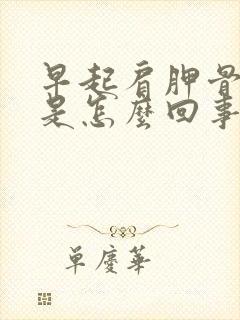 早起肩胛骨
是怎麼回事
單慶華